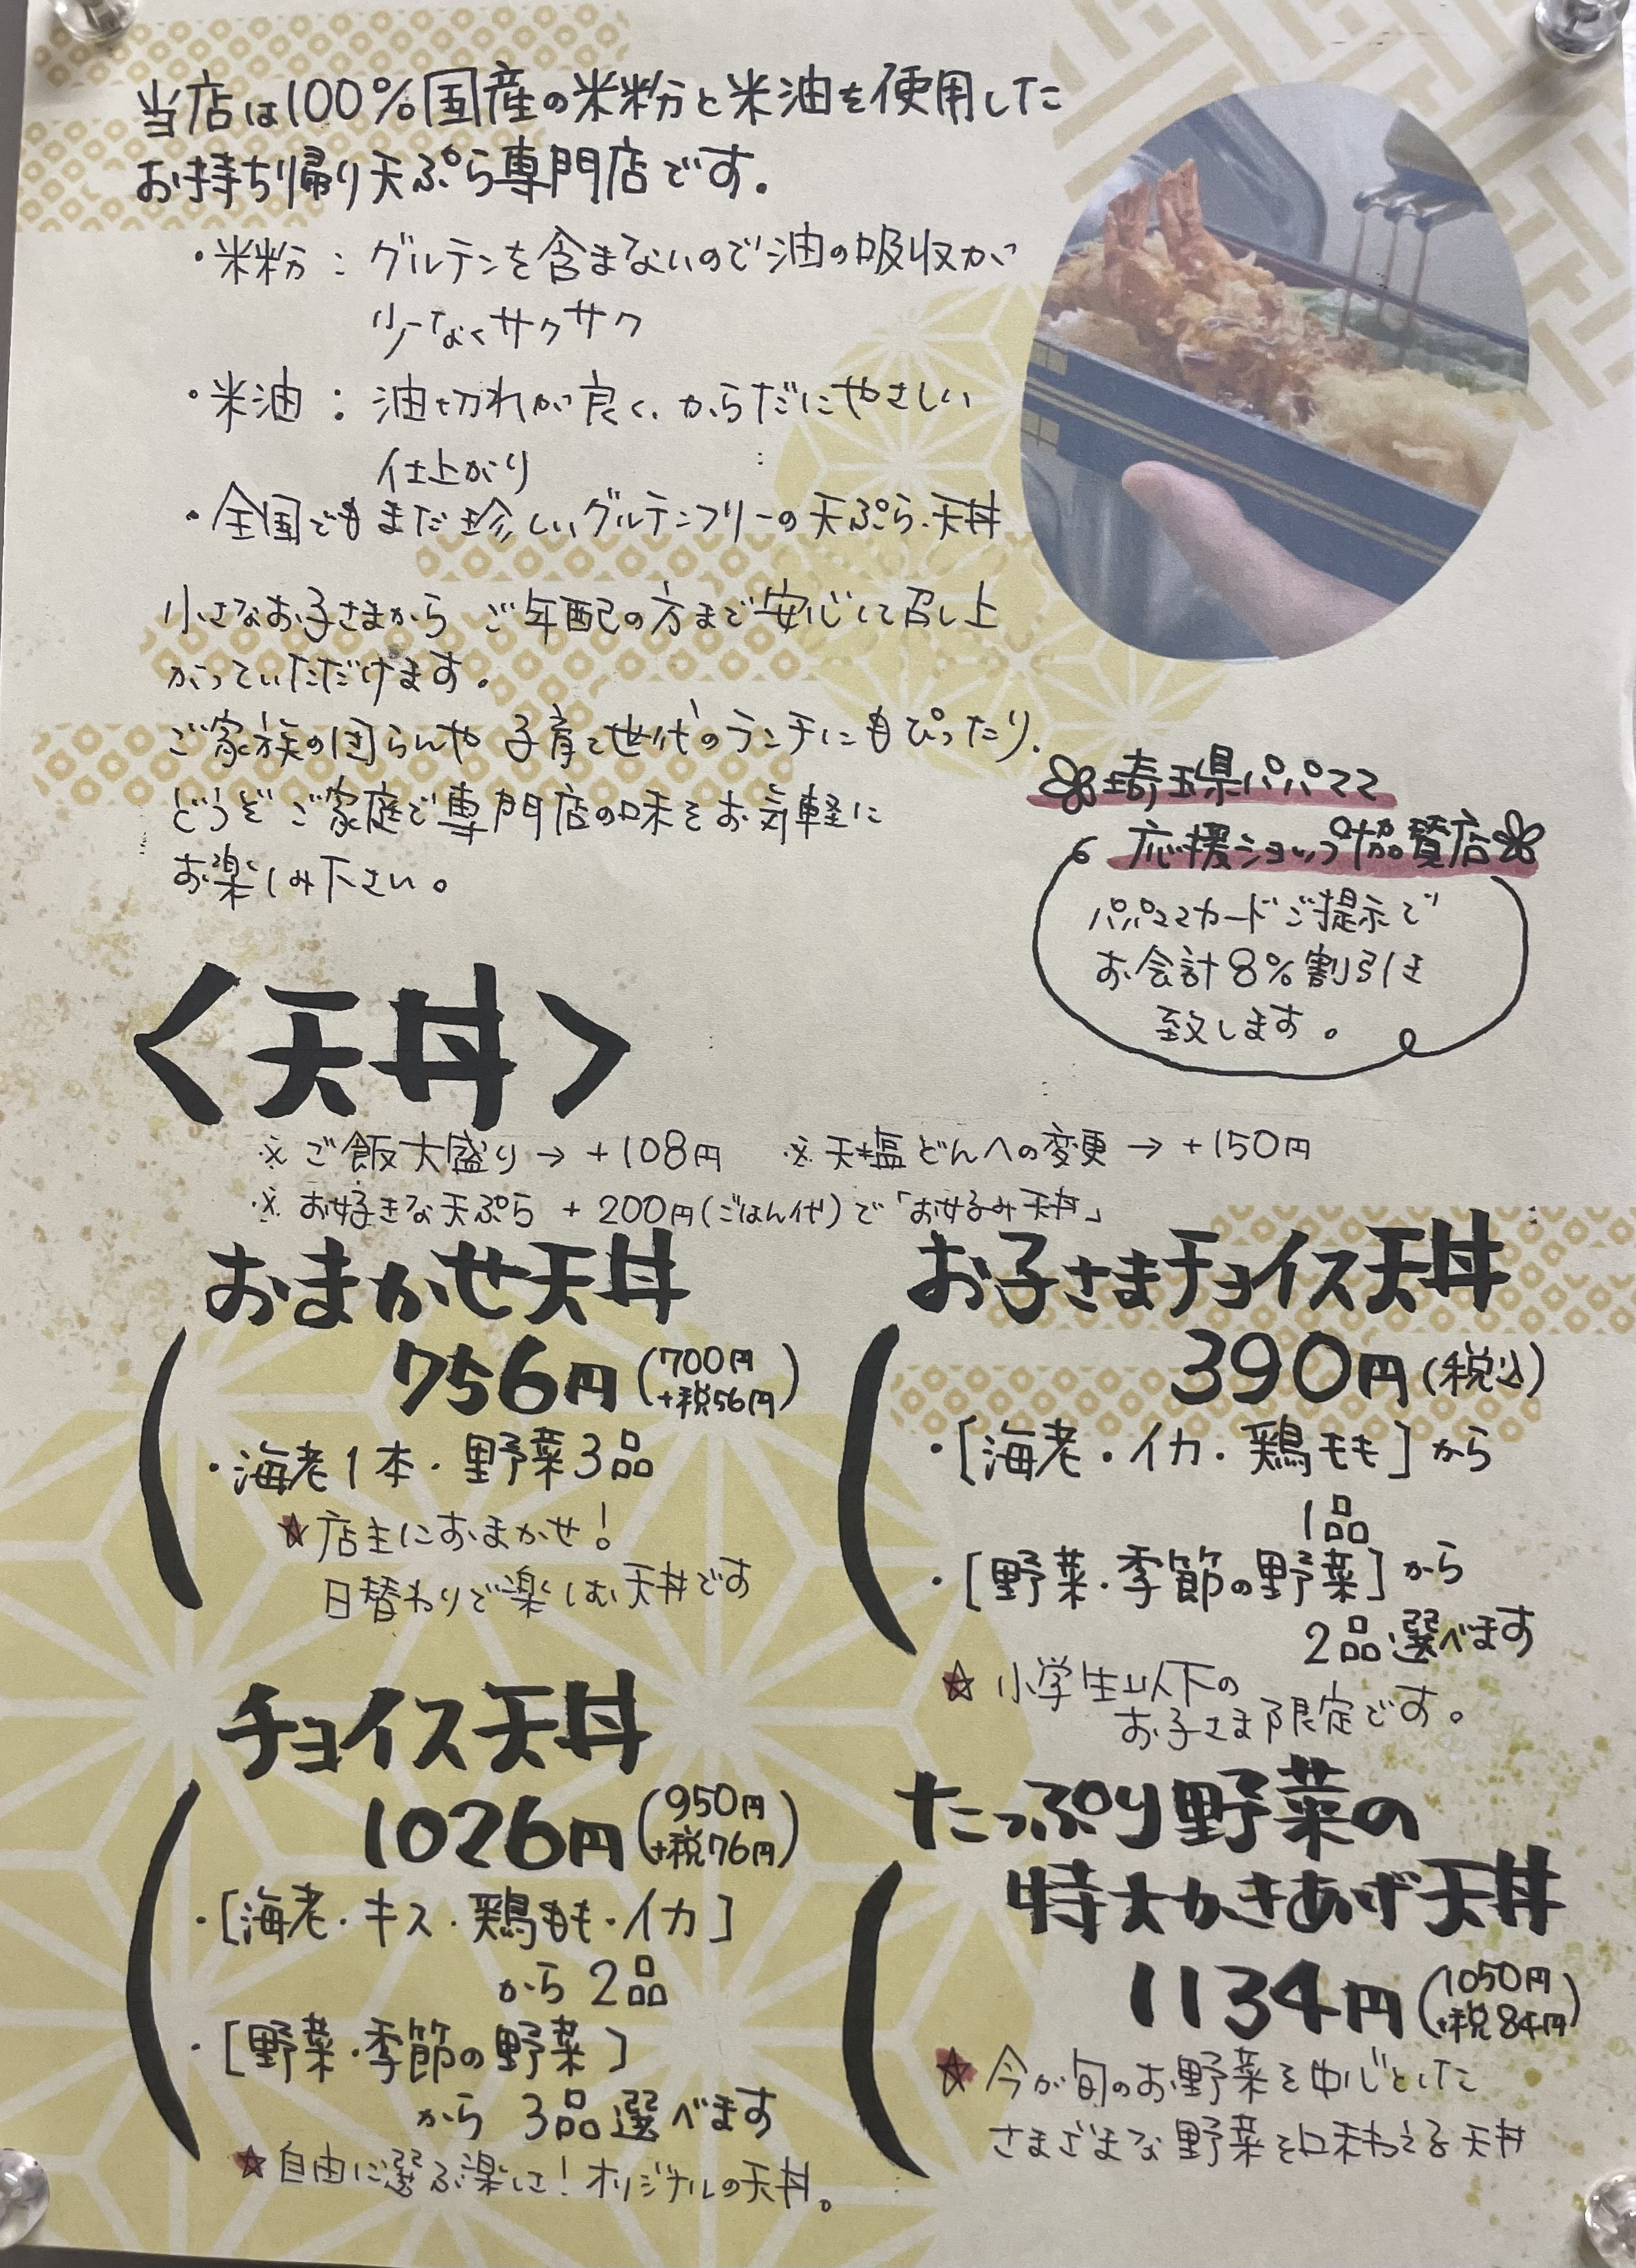 当店は100%国産の米粉と米油を使用した
お持ち帰り天ぷら専門店です。
・米粉：グルテンを含まないので油の吸収が
少なくサクサク
・米油：油切れが良く、からだにやさしい
仕上がり
・全国でもまだ珍しいグルテンフリーの天ぷら・天丼
小さなお子さまから ご年配の方まで安心して召し上
がっていただけます。
ご家族の団らんや 子育て世代のランチにもぴったり。
どうぞ ご家庭で専門店の味をお気軽に
お楽しみ下さい。
埼玉県パパママ
応援ショップ協賛店
パパママカードご提示で
お会計8%割引き
致します。
〈天丼〉
※ご飯大盛り→+108円 ※天塩どんへの変更→+150円
※お好きな天ぷら +200円(ごはん代)で「お好み天丼」
おまかせ天丼
756円(700円
+税56円)
・海老1本・野菜3品
☆店主におまかせ!
日替わりで楽しむ天丼です
チョイス天丼
1026円(950円
+税76円)
・[海老・キス・鶏もも・イカ]
から 2品
・[野菜・季節の野菜]
から 3品選べます
☆自由に選ぶ楽しさ!オリジナルの天丼。
お子さまチョイス天丼
390円(税込)
・[海老・イカ・鶏もも]から
1品
・[野菜・季節の野菜]から
2品選べます
☆小学生以下の
お子さま限定です。
たっぷり野菜の
特大かきあげ天丼
1134円(1050円
+税84円)
☆今が旬のお野菜を中心とした
さまざまな野菜を味わえる天丼